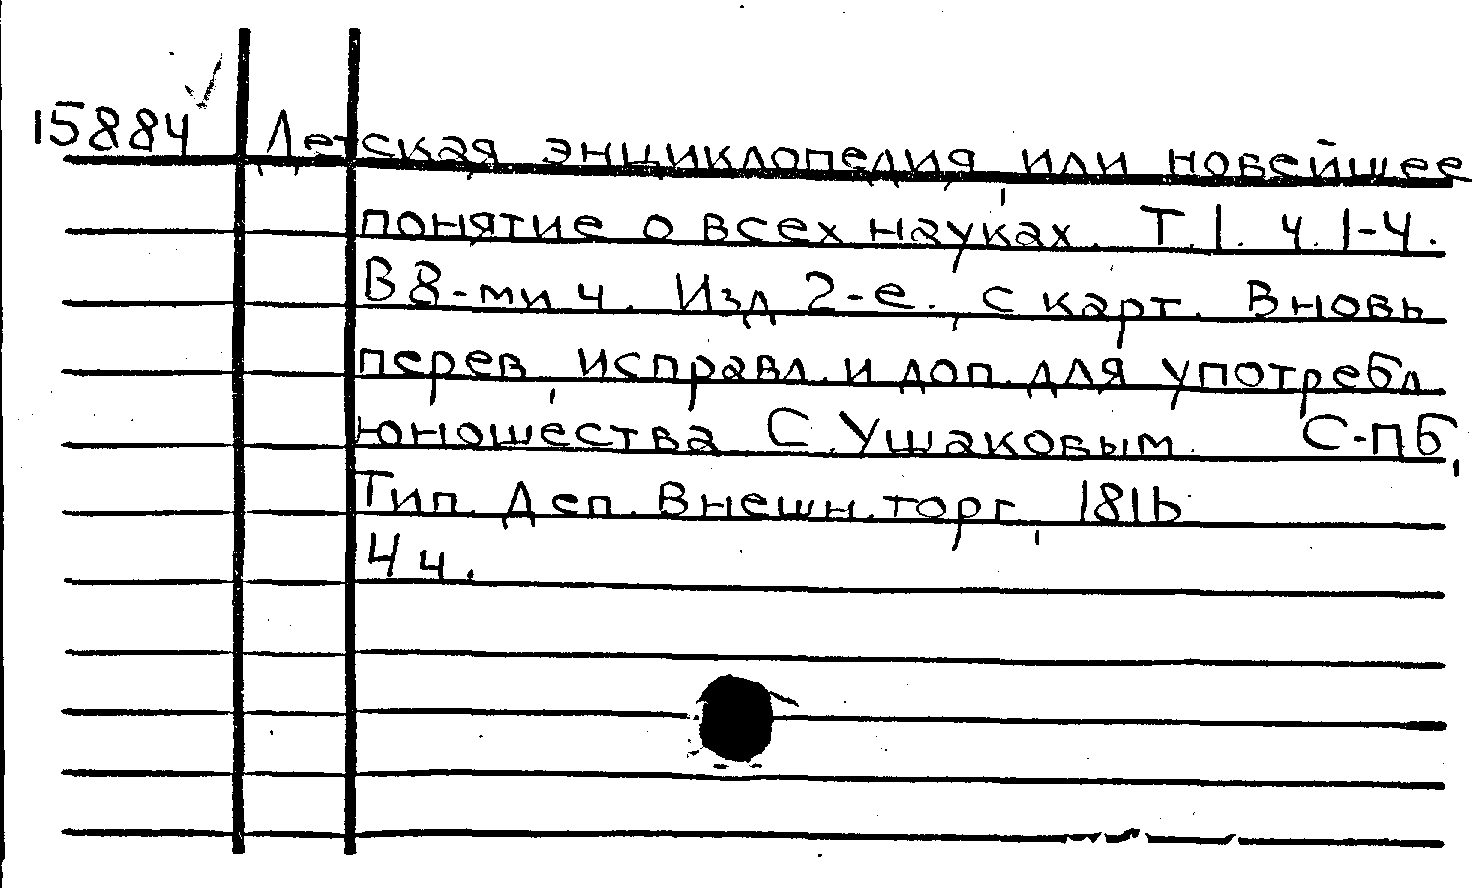 15884 Детская энциклопедия, или новейшее
понятие о всех науках. Т.1. ч. 1-4.
В 8-ми ч. Изд 2-е., с карт. Вновь
перев, исправл. и доп. для употребл
юношества С. Ушаковым. С-пб,
Тип. Деп. Внешн. торг, 1816
4 ч.